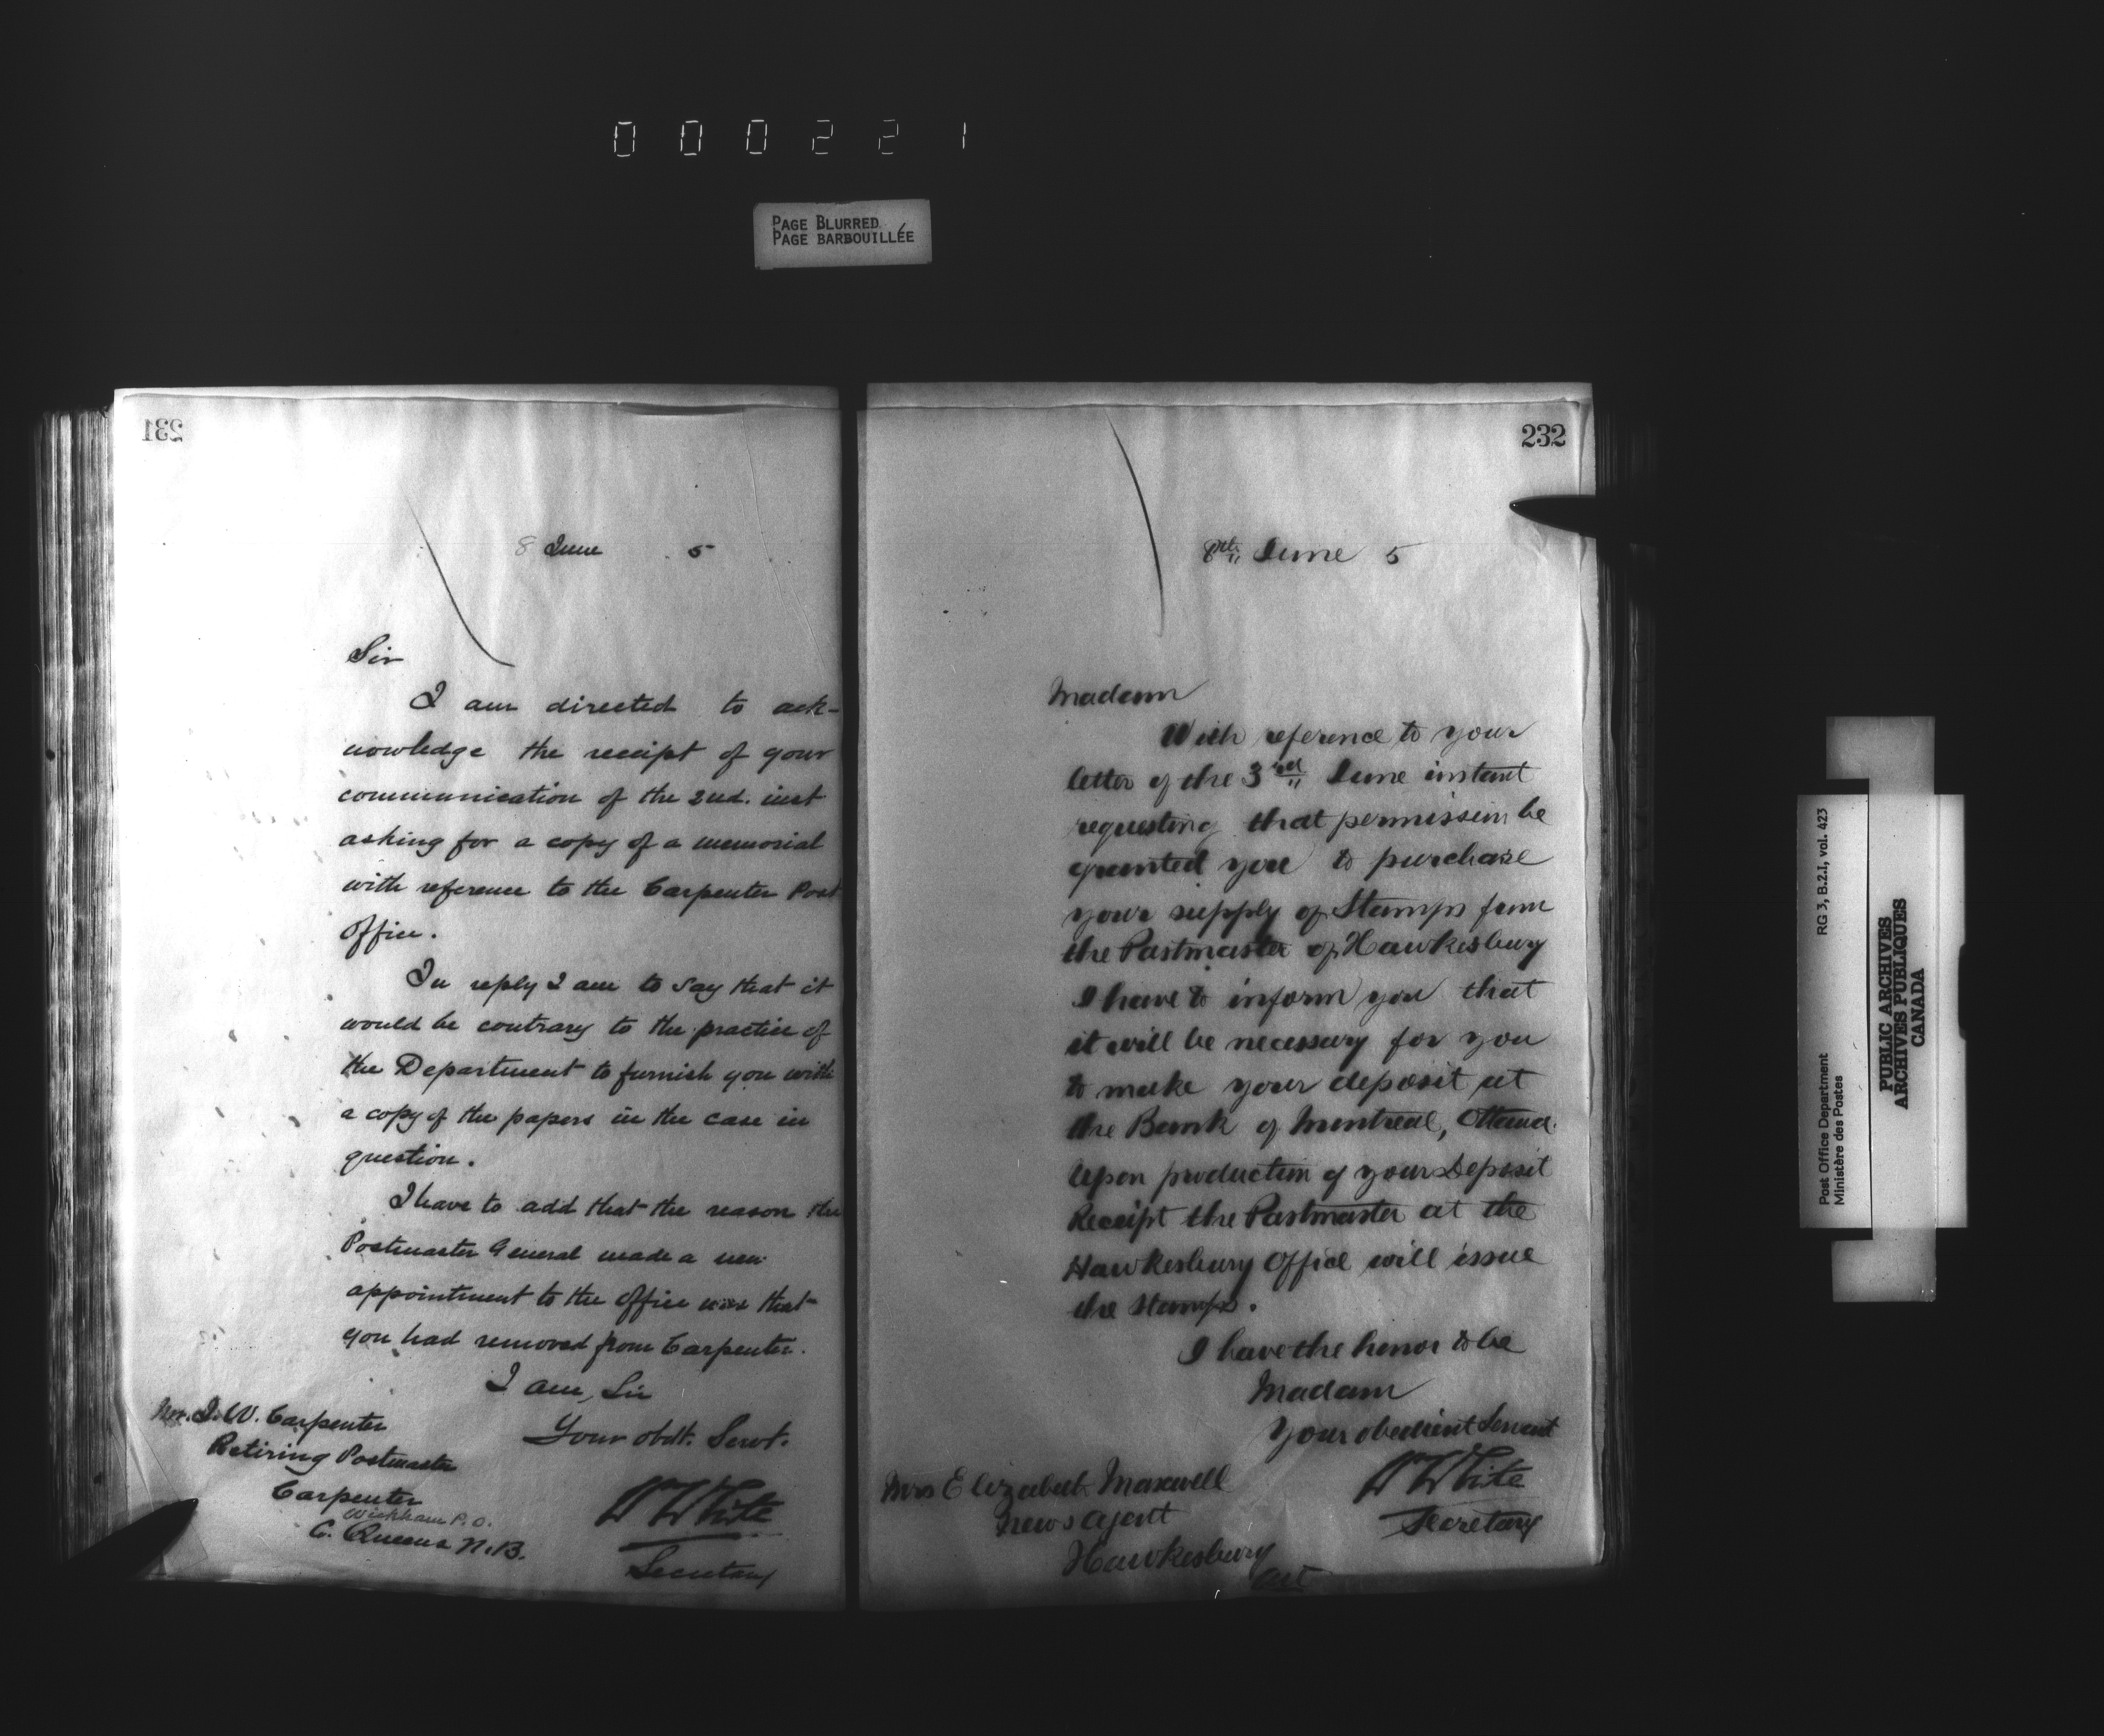 000221
PAGE BLURRED
PAGE BARBOUILLÉE
231
8 June 5
Sir
I am directed to ack-
nowledge the receipt of your
communication of the 2nd. inst
asking for a copy of a memorial
with reference to the Carpenter Post
Office.
In reply I am to say that it
would be contrary to the practice of
the Department to furnish you with
a copy of the papers in the case in
question.
I have to add that the reason the
Postmaster General made a new
appointment to the office was that
you had removed from Carpenter.
I am, Sir
Your obdt. Servt.
W White
Secretary
Mr. I. W. Carpenter
Retiring Postmaster
Carpenter
Wickham P.O.
C. Queens N.B.
232
8th June 5
Madam
With reference to your
letter of the 3rd June instant
requesting that permission be
granted you to purchase
your supply of Stamps from
the Postmaster of Hawkesbury
I have to inform you that
it will be necessary for you
to make your deposit at
the Bank of Montreal, Ottawa.
Upon production of your Deposit
Receipt the Postmaster at the
Hawkesbury Office will issue
the stamps.
I have the honor to be
Madam
Your obedient Servant
W White
Secretary
Mrs Elizabeth Maxwell
News Agent
Hawkesbury
Ont
Post Office Department
Ministère des Postes
RG 3, B.2.I, vol. 423
PUBLIC ARCHIVES
ARCHIVES PUBLIQUES
CANADA